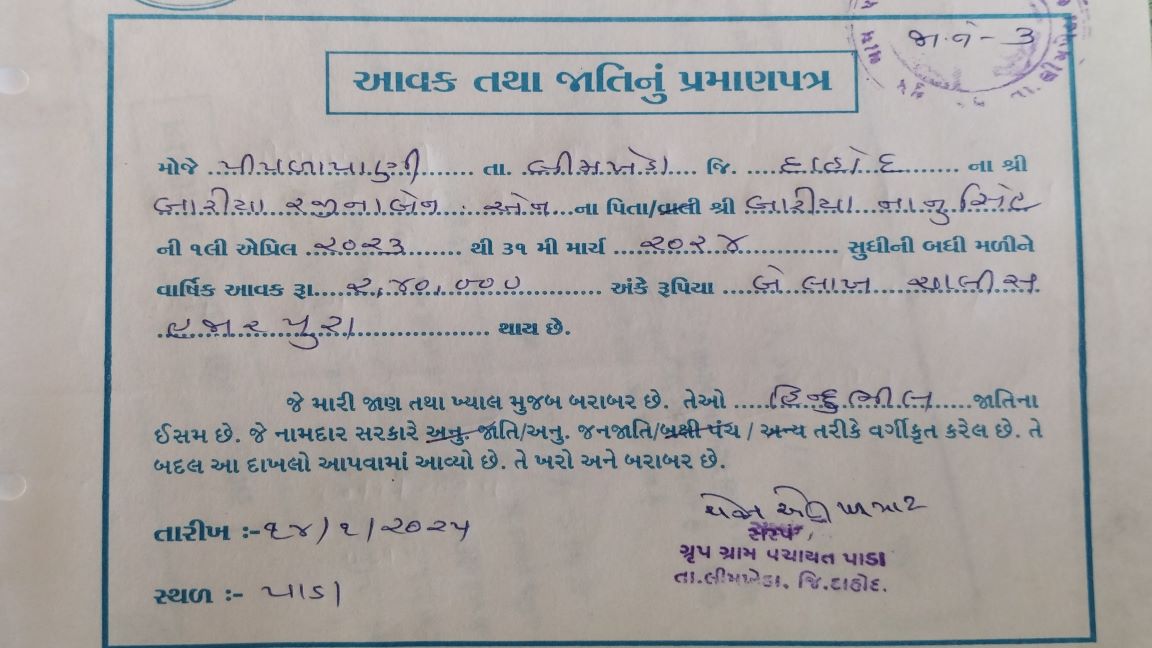 જા.નં - ૩
આવક તથા જાતિનું પ્રમાણપત્ર
મોજે ..પીપળાપાણી....... તા. .લીમખેડા.... જિ. ....દાહોદ........ ના શ્રી
બારીયા રજીનાબેન એન...ના પિતા/વાલી શ્રી બારીયા નાનુસિંહ
ની ૧લી એપ્રિલ ..૨૦૨૩........ થી ૩૧ મી માર્ચ ....૨૦૨૪............. સુધીની બધી મળીને
વાર્ષિક આવક રૂા.....૨,૪૦,૦૦૦............ અંકે રૂપિયા ....બે લાખ ચાલીસ
હજાર પુરા.................... થાય છે.
જે મારી જાણ તથા ખ્યાલ મુજબ બરાબર છે. તેઓ .....હિન્દુ ભીલ......જાતિના
ઈસમ છે. જે નામદાર સરકારે અનુ. જાતિ/અનુ. જનજાતિ/બક્ષી પંચ / અન્ય તરીકે વર્ગીકૃત કરેલ છે. તે
બદલ આ દાખલો આપવામાં આવ્યો છે. તે ખરો અને બરાબર છે.
તારીખ :-૧૪/૧/૨૦૨૫
સરપંચ
ગ્રૃપ ગ્રામ પંચાયત પાડા
તા.લીમખેડા. જિ.દાહોદ.
સ્થળ :- પાડા